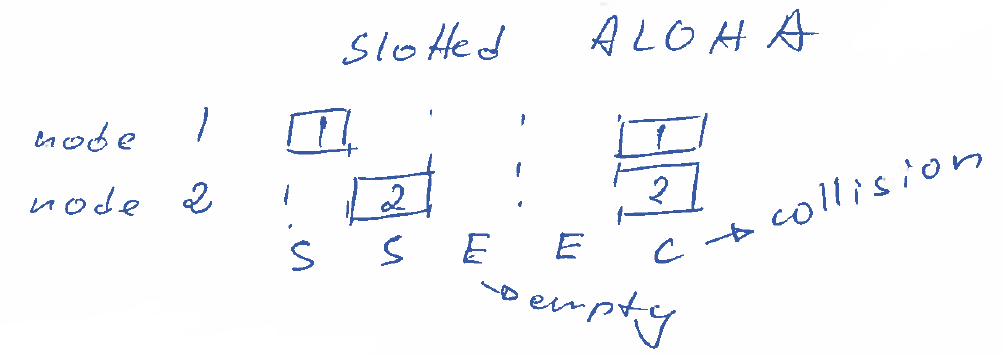 Slotted ALOHA
node 1 1 1
node 2 2 2
S S E E C → collision
→ empty